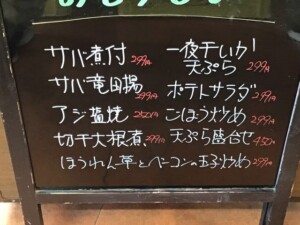 サバ煮付 299円
サバ竜田揚 299円
アジ蒲焼 250円
切干大根煮 299円
一夜干いか
天ぷら 299円
ポテトサラダ 299円
ごぼう炒め 299円
天ぷら盛合せ 450円
ほうれん草とベーコンの玉子炒め 299円